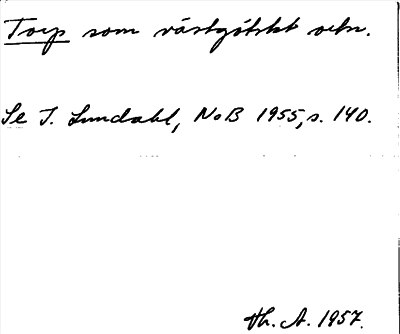 Torp som västgötskt ortn.
Se I. Lundahl, NoB 1955, s. 140.
Th. A. 1957.